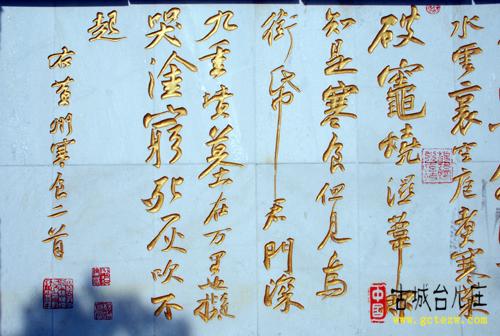 水雲裏空庖煮寒
破竈燒濕葦
知是寒食但見烏
銜帋君門深
九重墳墓在万里也擬
哭塗窮死灰吹不
起
右黃州寒食二首
中國
古城台儿庄